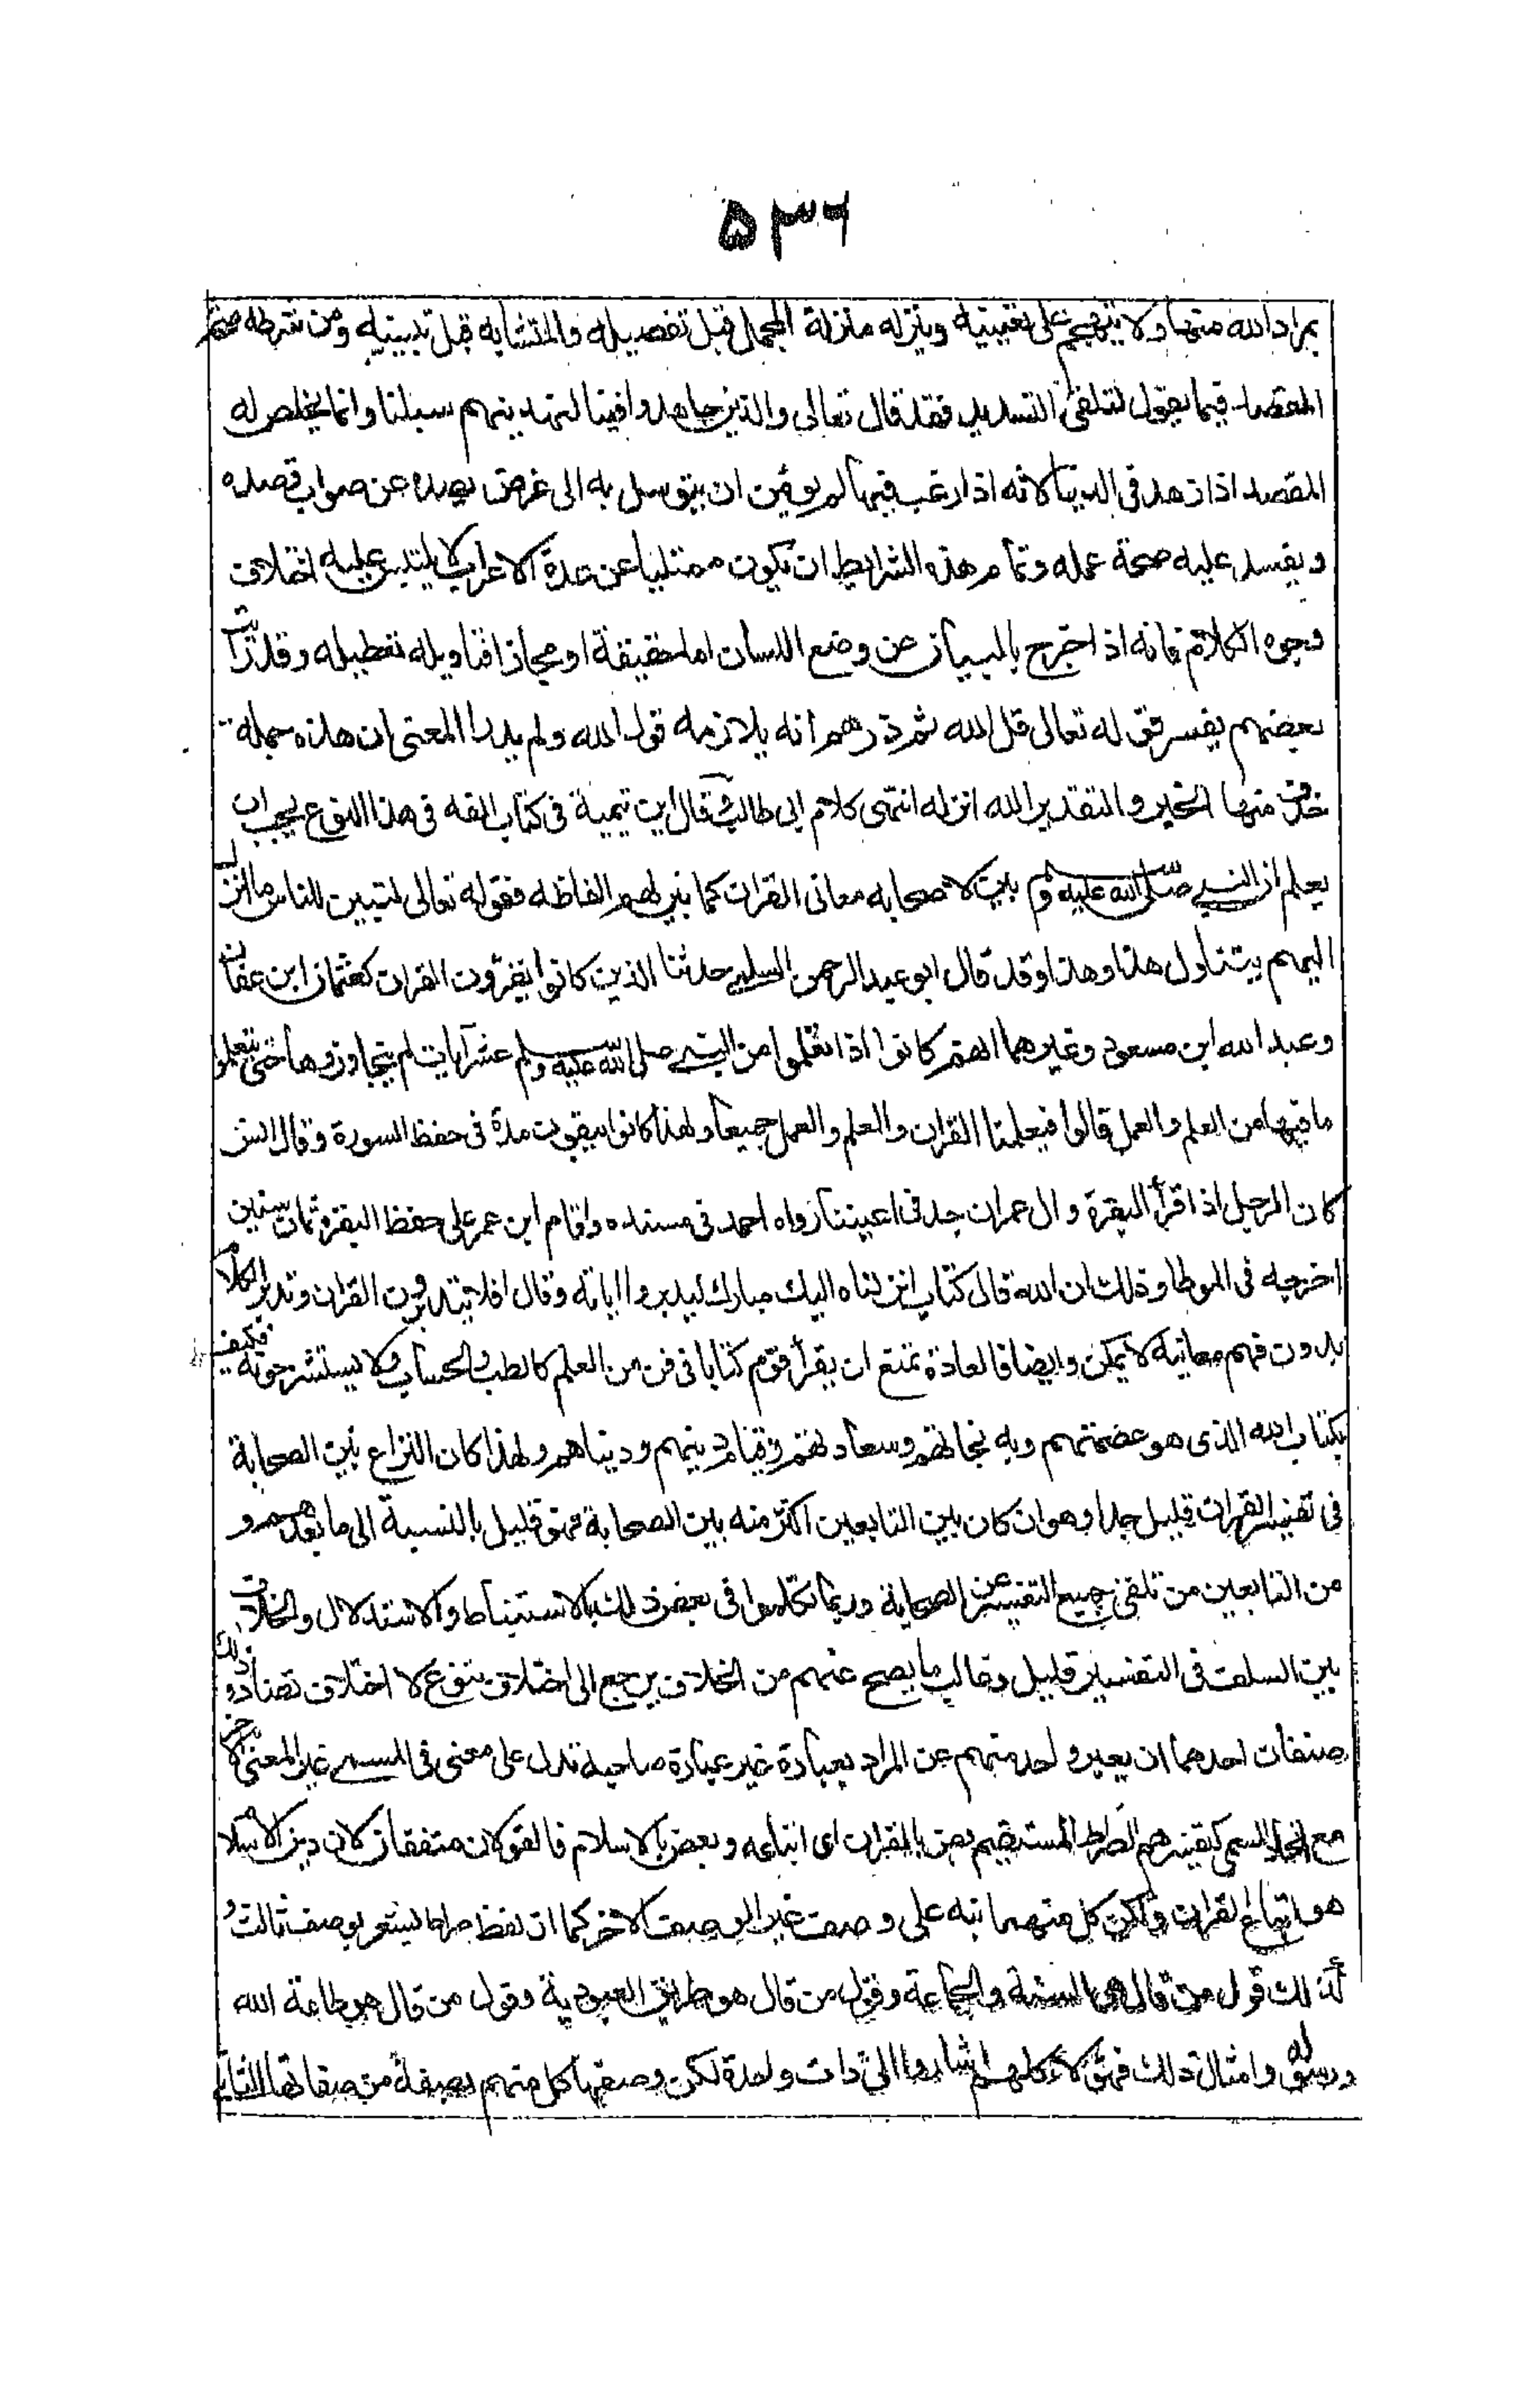 ٥٣٦
بمراد الله منها ولا يتهجم على تعيينه وينزله منزلة المجمل قبل تفصيله والمتشابه قبل تبيينه ومن شرطه صحة
المقصد فيما يقول لتلقى التسديد فقد قال تعالى والذين جاهدوا فينا لنهدينهم سبلنا وانما يخلص له
المقصد اذا زهد فى الدنيا لانه اذا رغب فيها لم يؤمن ان يتوسل به الى غرض يصده عن صواب قصده
ويفسد عليه صحة عمله وتمام هذه الشرايط ان يكون ممتليا من عدة الاعراب لا يلتبس عليه اختلاف
وجوه الكلام فانه اذا خرج بالبيان عن وضع اللسان اما حقيقة او مجازا فتاويله تعطيله وقد رأيت
بعضهم يفسر قوله تعالى قل الله ثم ذرهم انه يلازمه قول الله ولم يدر المعنى ان هذه جملة
حذف منها الخبر والتقدير الله انزله انتهى كلام ابى طالب وقال ابن تيمية فى كتاب الفه فى هذا النوع يجب ان
يعلم ان النبى صلى الله عليه وسلم بين لاصحابه معانى القران كما بين لهم الفاظه فقوله تعالى لتبين للناس ما نزل
اليهم يتناول هذا وهذا وقد قال ابو عبد الرحمن السلمى حدثنا الذين كانوا يقرؤن القران كعثمان ابن عفان
وعبد الله ابن مسعود وغيرهما انهم كانوا اذا تعلموا من النبى صلى الله عليه وسلم عشر آيات لم يتجاوزوها حتى يتعلموا
ما فيها من العلم والعمل قالوا فتعلمنا القران والعلم والعمل جميعا ولهذا كانوا يبقون مدة فى حفظ السورة وقال انس
كان الرجل اذا قرأ البقرة وال عمران جد فى اعيننا رواه احمد فى مسنده واقام ابن عمر على حفظ البقرة ثمان سنين
اخرجه فى الموطا وذلك ان الله قال كتاب انزلناه اليك مبارك ليدبروا اياته وقال افلا يتدبرون القران وتدبر الكلام
بدون فهم معانيه لا يمكن وايضا فالعادة تمنع ان يقرأ قوم كتابا فى فن من العلم كالطب والحساب ولا يستشرحونه فكيف
بكتاب الله الذى هو عصمتهم وبه نجاتهم وسعادتهم وقيام دينهم ودنياهم ولهذا كان النزاع بين الصحابة
فى تفسير القران قليل جدا وهو ان كان بين التابعين اكثر منه بين الصحابة فهو قليل بالنسبة الى ما بعدهم و
من التابعين من تلقى جميع التفسير عن الصحابة وربما تكلموا فى بعض ذلك بالاستنباط والاستدلال والخلاف
بين السلف فى التفسير قليل وغالب ما يصح عنهم من الخلاف يرجع الى اختلاف تنوع لا اختلاف تضاد وذلك
صنفان احدهما ان يعبر واحد منهم عن المراد بعبارة غير عبارة صاحبه تدل على معنى فى المسمى غير المعنى الاخر
مع اتحاد المسمى كتفسيرهم الصراط المستقيم بعض بالقران اى اتباعه وبعض بالاسلام فالقولان متفقان لان دين الاسلام
هو اتباع القران ولكن كل منهما نبه على وصف غير الوصف الاخر كما ان لفظ صراط يشعر بوصف ثالث و
كذلك قول من قال هو السنة والجماعة وقول من قال هو طريق العبودية وقول من قال هو طاعة الله
ورسوله وامثال ذلك فهؤلاء كلهم اشاروا الى ذات واحدة لكن وصفها كل منهم بصفة من صفاتها الثانى